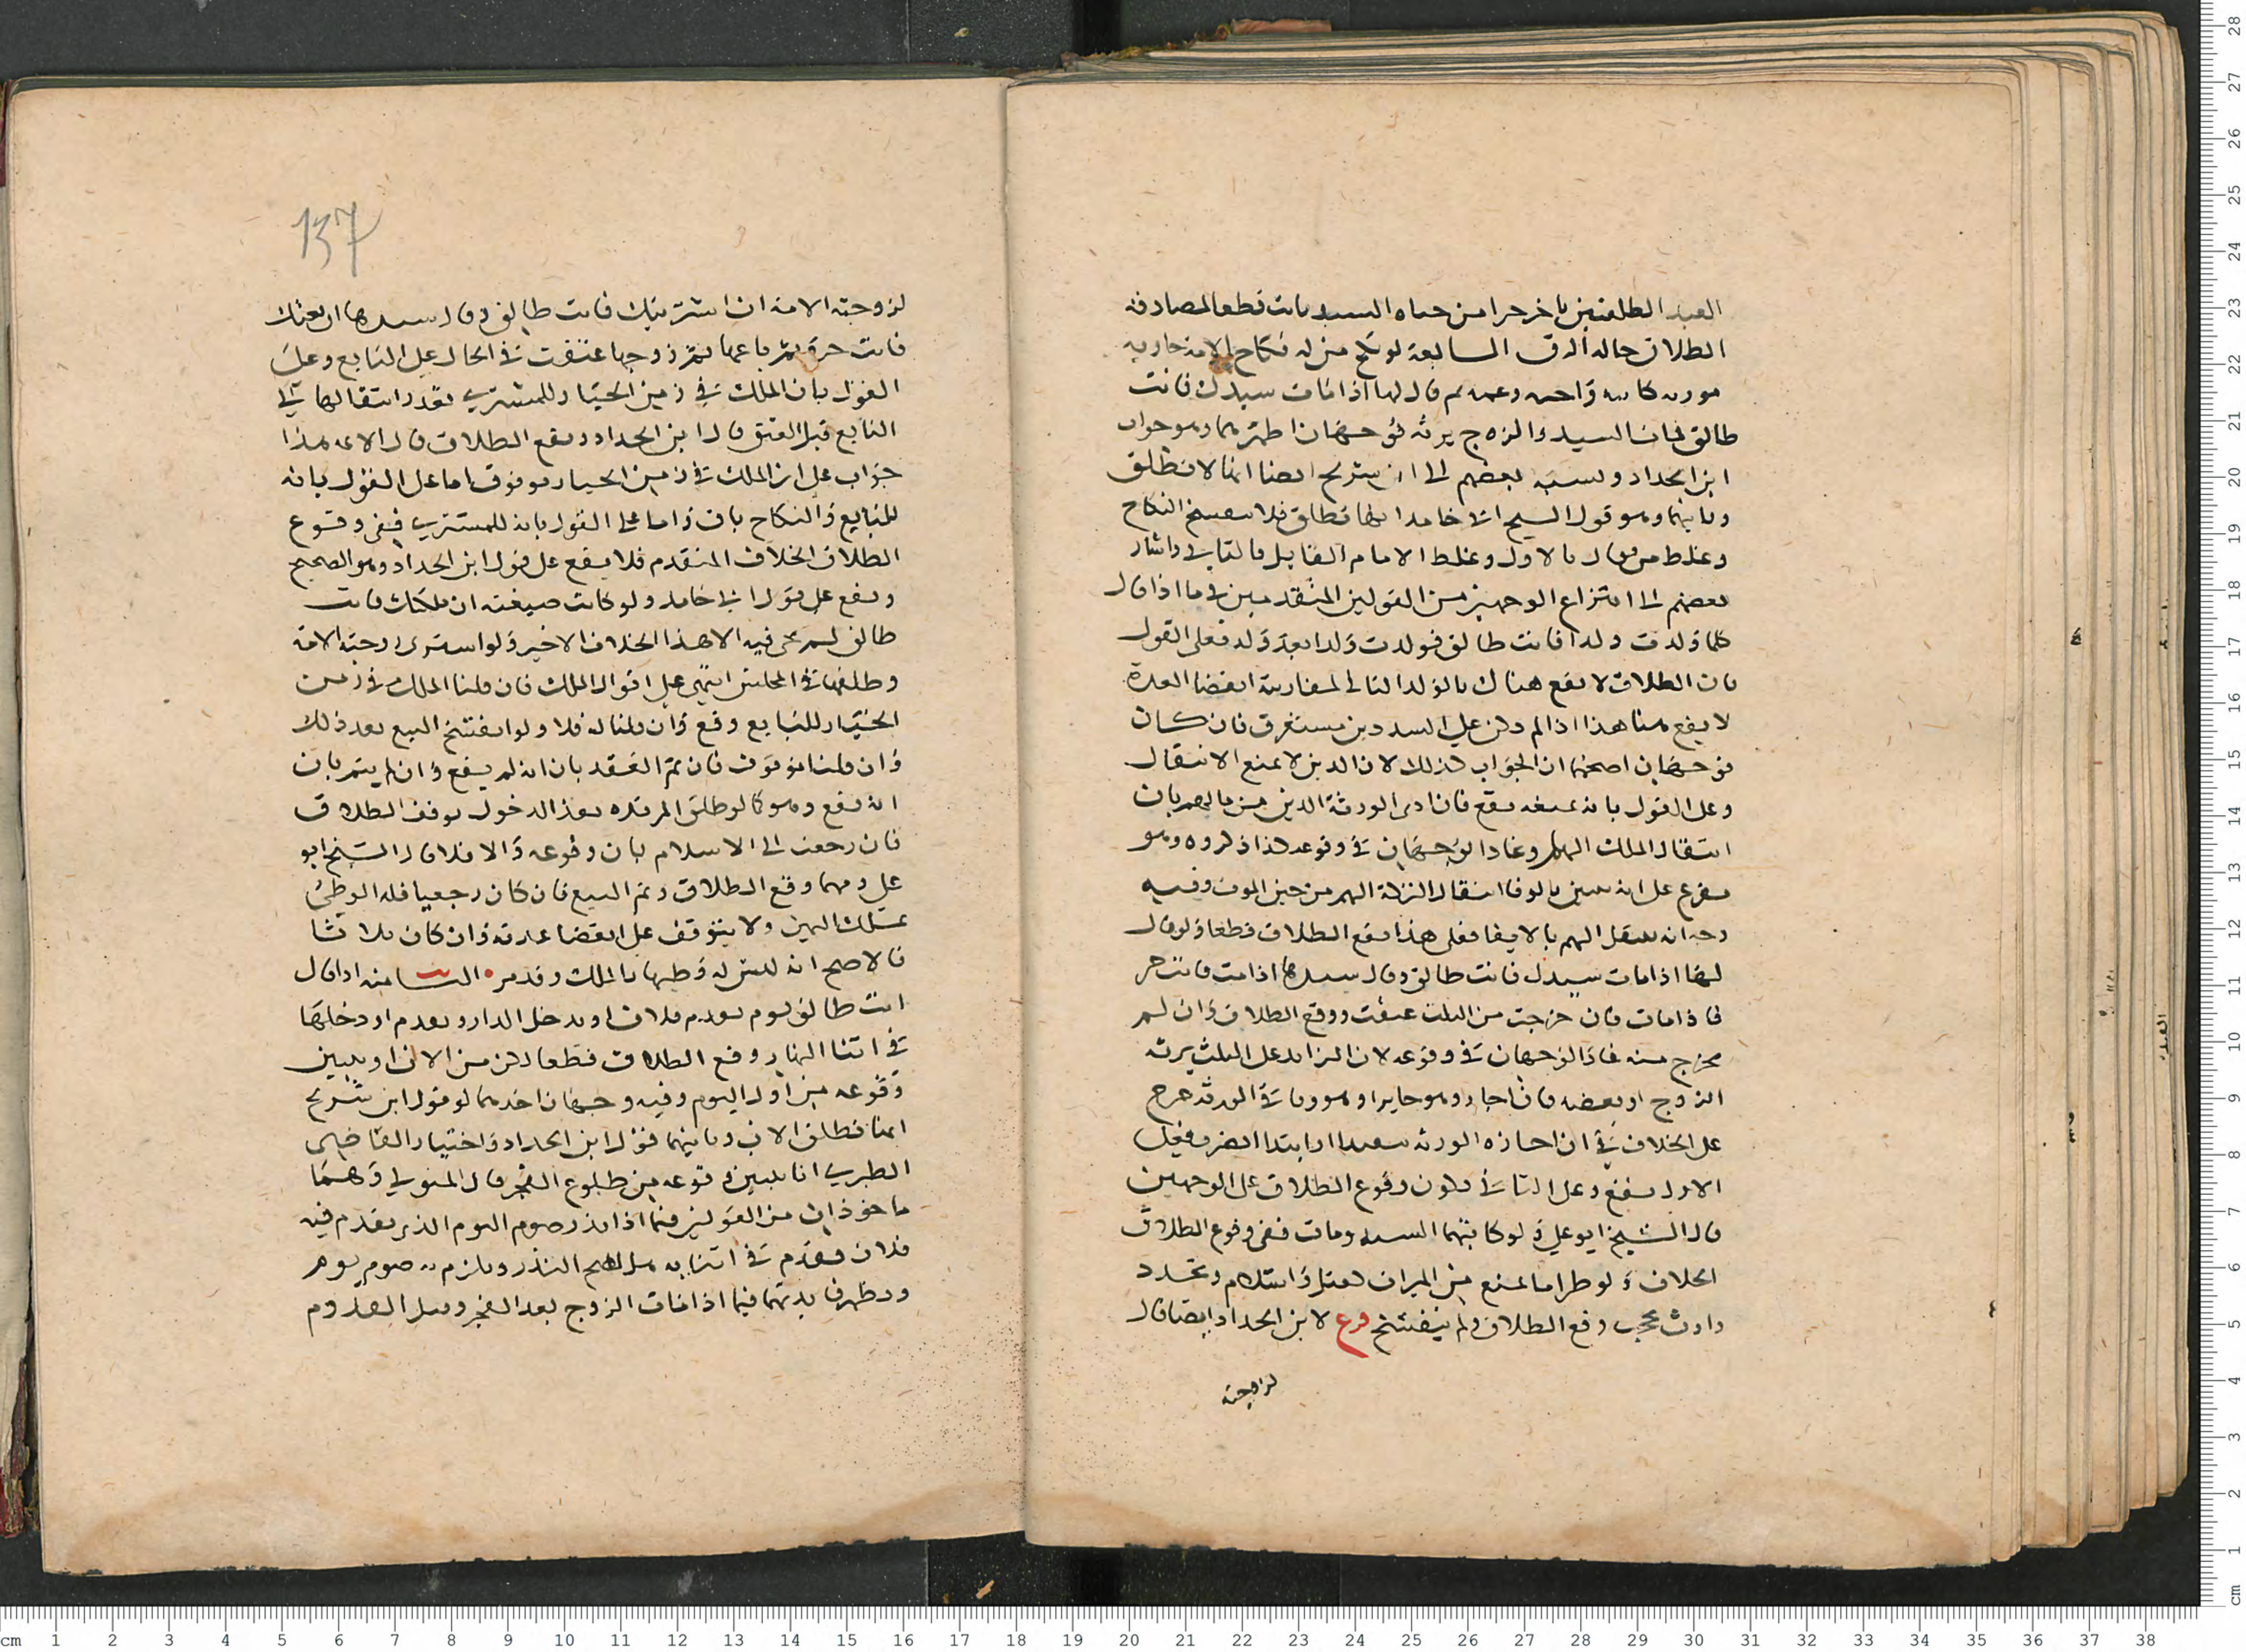 العبد الطلقتين باخر جزا من حياه السيد بانت قطعا لمصادفه
الطلاق حاله الرق السابعة لو نكح منزله نكاح الامه جاريه
مورثه كابيه واخيه وعمه ثم قال لها اذا مات سيدك فانت
طالق فمات السيد والزوج يرثه فوجهان اظهرهما وهو جواب
ابن الحداد ونسبه بعضهم الى ابن سريج ايضا انها لا تطلق
وثانيهما وهو قول الشيخ ابى حامد انها تطلق فلا ينفسخ النكاح
وغلط من قال بالاول وغلط الامام القايل بالثاني واشار
بعضهم الى انتزاع الوجهين من القولين المتقدمين فى ما اذا قال
كلما ولدت ولدا فانت طالق فولدت ولدا بعد ولد فعلى القول
بان الطلاق لا يقع هناك بالولد الثانى لمقارنة انقضا العدة
لا يقع هنا هذا اذا لم يكن على السيد دين مستغرق فان كان
فوجهان اصحهما ان الجواب كذلك لان الدين لا يمنع الانتقال
وعلى القول بانه يمنعه يقع فان ادى الورثة الدين من مالهم بان
انتقال الملك اليهم وعاد الوجهان فى وقوعه كذا ذكروه وهو
مفرع على انه يتبين بالوفا انتقال التركة اليهم من حين الموت وفيه
وجه انه ينتقل اليهم بالايفا فعلى هذا يقع الطلاق قطعا ولو قال
لها اذا مات سيدك فانت طالق وقال سيدها اذا مت فانت حر
فاذا مات فان خرجت من الثلث عتقت ووقع الطلاق وان لم
تخرج منه عاد الوجهان فى وقوعه لان الزايد على الثلث يرثه
الزوج او بعضه فان اجاز وهو حايز او هو وباقى الورثة خرج
على الخلاف فى ان اجازه الورثه تنفيذ او ابتدا تصرف فعلى
الاول يقع وعلى الثانى يكون وقوع الطلاق على الوجهين
قال الشيخ ابو على ولو كاتبها السيد ومات ففى وقوع الطلاق
الخلاف ولو طرا ما يمنع من الميراث كقتل واسلام وتجدد
وارث يحجب وقع الطلاق ولم ينفسخ فرع لابن الحداد ايضا قال
لزوجته
137
لزوجته الامة ان اشتريتك فانت طالق وقال سيدها ان بعتك
فانت حرة ثم باعها ثم زوجها عتقت فى الحال على البايع وعلى
القول بان الملك فى زمن الخيار للمشترى يقدر انتقالها الى
البايع قبل العتق قال ابن الحداد ويقع الطلاق قال الايمه هذا
جواب على ان الملك فى زمن الخيار موقوف اما على القول بانه
للبايع فالنكاح باق واما على القول بانه للمشترى ففى وقوع
الطلاق الخلاف المتقدم فلا يقع على قول ابن الحداد وهو الصحيح
ويقع على قول ابى حامد ولو كانت صيغته ان ملكتك فانت
طالق لم يجى فيه الا هذا الخلاف الاخير ولو اشترى زوجته الامة
وطلقها فى المجلس انبنى على اقوال الملك فان قلنا الملك فى زمن
الخيار للبايع وقع وان قلنا له فلا ولو انفسخ البيع بعد ذلك
وان قلنا موقوف فان تم العقد بان انه لم يقع وان لم يتم بان
انه يقع وهو كما لو طلق المرتده بعد الدخول يوقف الطلاق
فان رجعت الى الاسلام بان وقوعه والا فلا قال الشيخ ابو
على ومهما وقع الطلاق وتم البيع فان كان رجعيا فله الوطئ
بملك اليمين ولا يتوقف على انقضا عدته وان كان ثلاثا
فالاصح انه ليس له وطيها بالملك وقد مر الثامنه اذا قال
انت طالق يوم يقدم فلان او يدخل الدار وقدم او دخلها
فى اثنا النهار وقع الطلاق قطعا لكن من الان او يتبين
وقوعه من اول اليوم وفيه وجهان احدهما لو قول ابن سريج
انها تطلق الان وثانيهما قول ابن الحداد واختيار القاضى
الطبرى انا نتبين وقوعه من طلوع الفجر قال المتولى وهما
ماخوذان من القولين فيما اذا نذر صوم اليوم الذى يقدم فيه
فلان فقدم فى اثنايه هل يصح النذر ويلزمه صوم يوم
وتظهر فايدتهما فيما اذا مات الزوج بعد الفجر وقبل القدوم